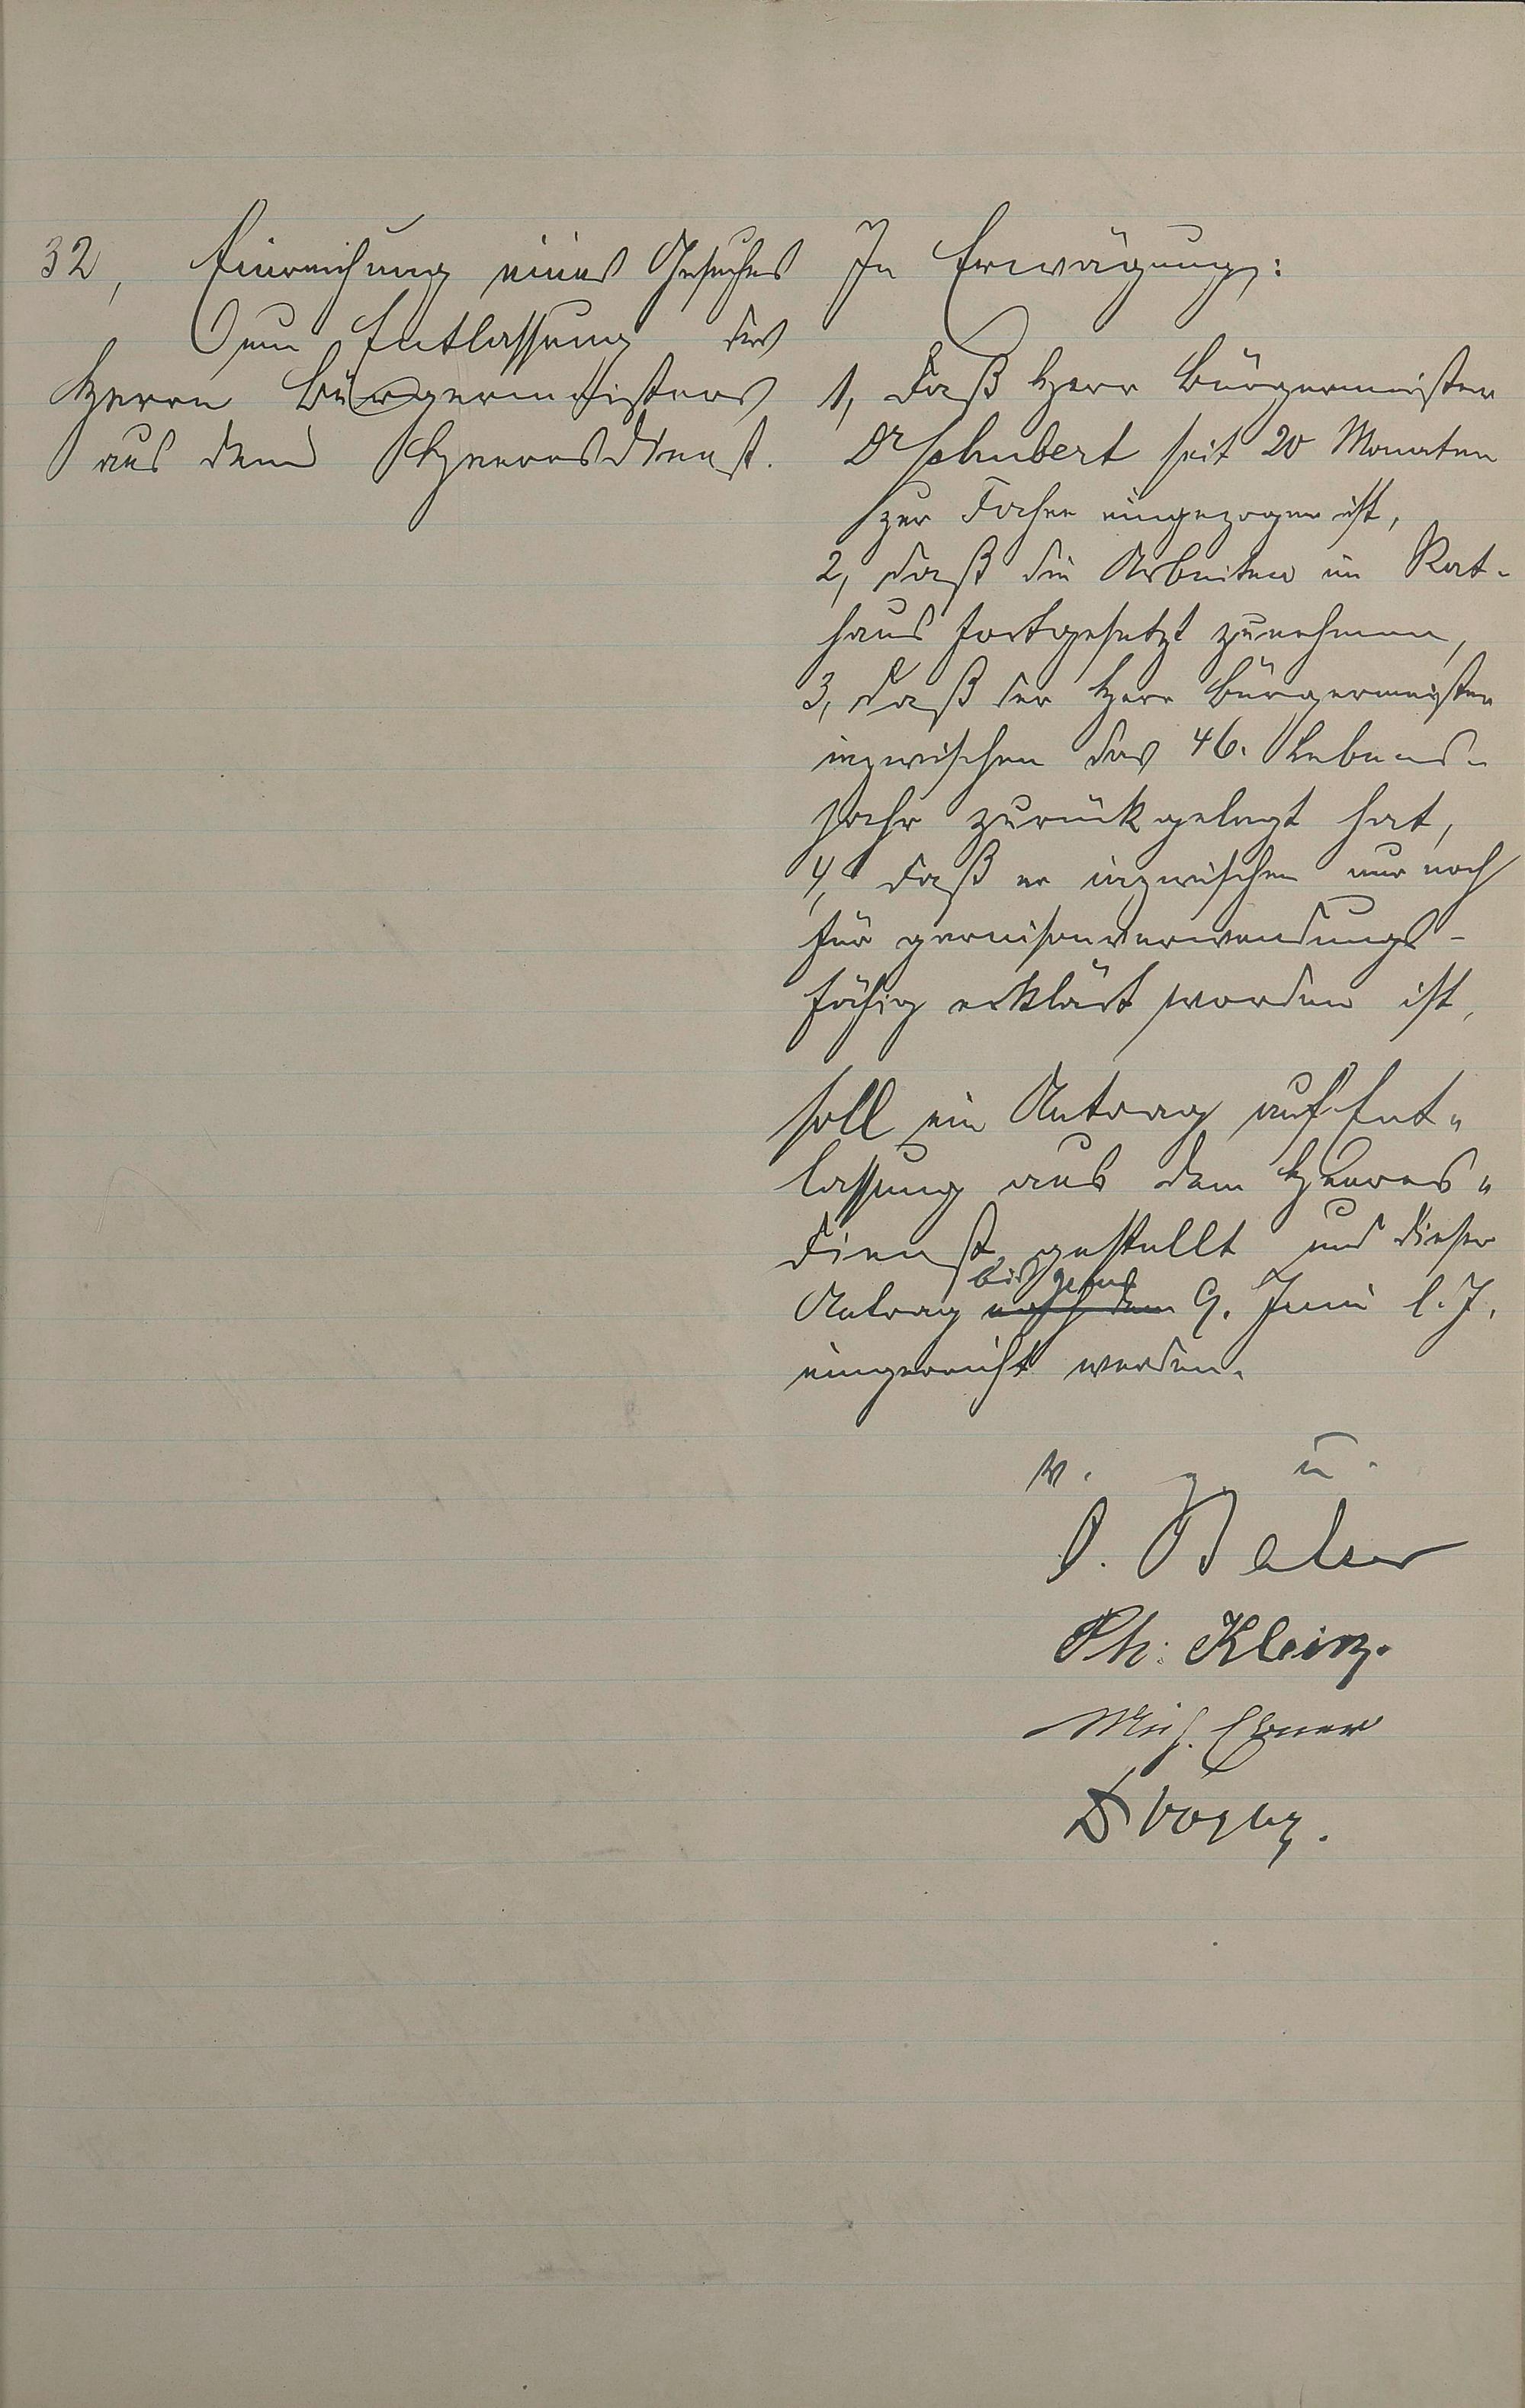 32, Einreichung eines Gesuches
um Entlassung des
Herrn Bürgermeisters
aus dem Heeresdienst.
In Erwägung:
1, daß Herr Bürgermeister
Dr Schubert seit 20 Monaten
zur Fahne eingezogen ist,
2, daß die Arbeiten im Rat-
haus fortgesetzt zunehmen,
3, daß der Herr Bürgermeister
inzwischen das 46. Lebens-
jahr zurückgelegt hat,
4, daß er inzwischen nur noch
für garnisonverwendungs-
fähig erklärt worden ist,
soll ein Antrag auf Ent-
lassung aus dem Heeres-
dienst gestellt und dieser
bis zum
Antrag nach dem 9. Juni l. J.
eingereicht werden.
v. g. u.
Ph. Klein.
Mich. Ebner